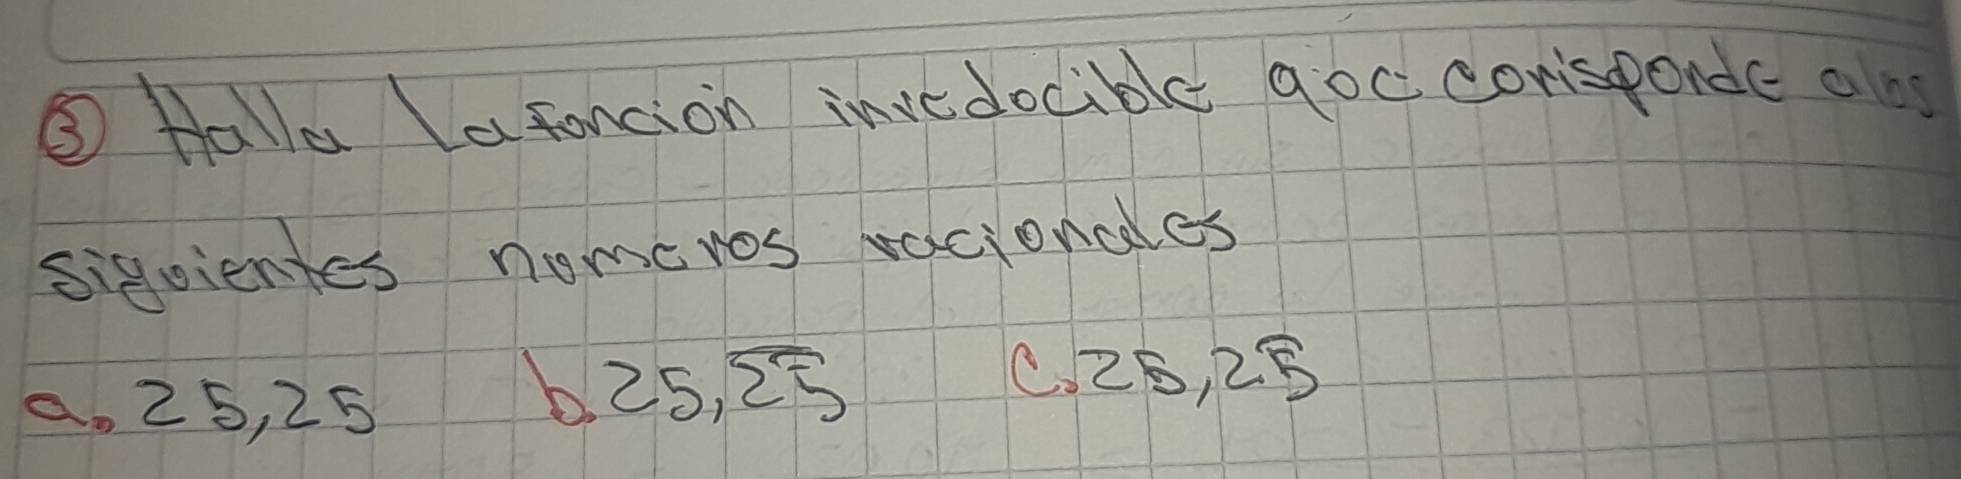 ③ Halla la foncion invedocible qoe corisponde alos
sigoientes nomeros racionales
a. 25,25 b. 25,\overline{25} c. 25,2\overline{5}